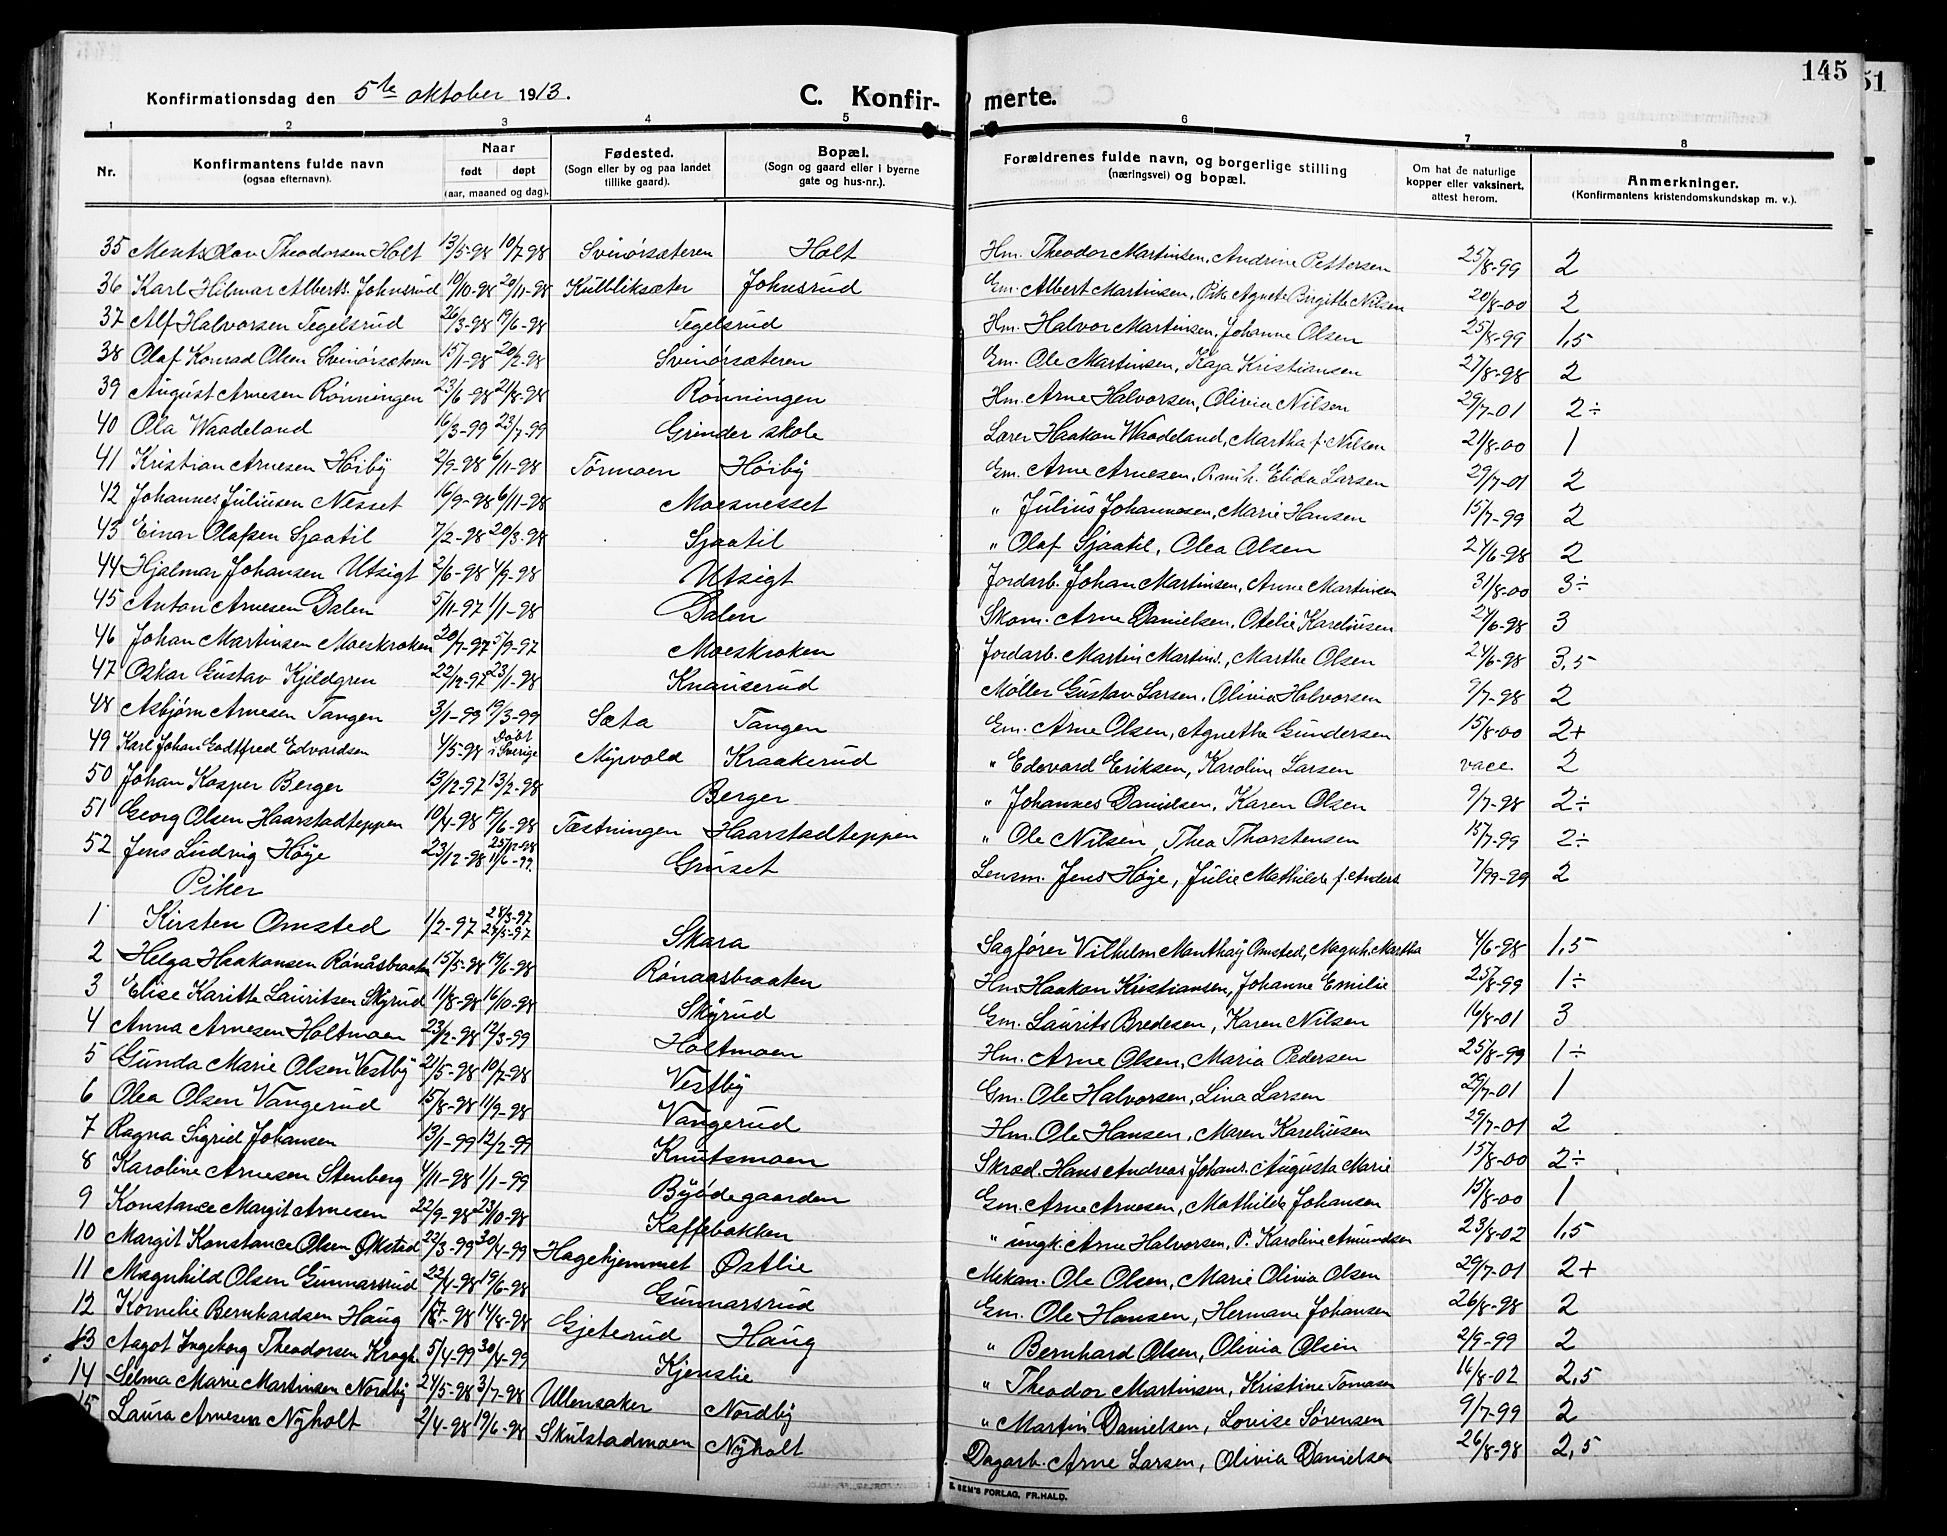 145
51
Konfirmationsdag den 5te oktober 1913.
C. Konfirmerte.
1 2 3 4 5 6 7 8
Nr.
Konfirmantens fulde navn
(ogsaa efternavn).
Naar
født døpt
(aar, maaned og dag).
Fødested.
(Sogn eller by og paa landet
tillike gaard).
Bopæl.
(Sogn og gaard eller i byerne
gate og hus-nr.).
Forældrenes fulde navn, og borgerlige stilling
(næringsvei) og bopæl.
Om hat de naturlige
kopper eller vaksinert,
attest herom.
Anmerkninger.
(Konfirmantens kristendomskundskap m. v.).
35 Olav Theodorsen Holt 13/5-98 10/7-98 Svinörsæteren Holt Hm. Theodor Martinsen, Andrine Pettersen 25/8-99 2
36 Karl Hilmar Alberts. Johnsrud 19/10-98 20/11-98 Kulbliksæter Johnsrud Gm. Albert Martinsen, Pike Agnete Birgitte Nilsen 20/8-00 2
37 Alf Halvorsen Tegelsrud 26/3-98 19/6-98 Tegelsrud Hm. Halvor Martinsen, Johanne Olsen 25/8-99 1,5
38 Olaf Konrad Olsen Svinörsæteren 15/1-98 20/2-98 Svinörsæteren Gm. Ole Martinsen, Kaja Kristiansen 27/8-98 2
39 August Arnesen Rönningen 23/6-98 21/8-98 Rönningen Hm. Arne Halvorsen, Olivia Nilsen 29/7-01 2÷
40 Ola Waadeland 16/3-99 23/7-99 Grinder skole Lærer Haakon Waadeland, Martha f. Nilsen 21/8-00 1
41 Kristian Arnesen Höiby 2/9-98 6/11-98 Törmoen Höiby Gm. Arne Arnesen, Elida Larsen 29/7-01 2
42 Johannes Juliusen Nesset 16/9-98 6/11-98 Moesnesset " Julius Johannesen, Marie Hansen 15/7-99 2
43 Einar Olafsen Sjaatil 7/2-98 20/3-98 Sjaatil " Olaf Sjaatil, Olea Olsen 24/6-98 2
44 Hjalmar Johansen Utsigt 2/6-98 4/9-98 Utsigt Jordarb. Johan Martinsen, Anne Martinsen 31/8-00 3÷
45 Anton Arnesen Dalen 5/11-97 1/1-98 Dalen Skom. Arne Danielsen, Otelie Kareliusen 24/6-98 3
46 Johan Martinsen Moeskroken 20/7-97 5/9-97 Moeskroken Jordarb. Martin Martins., Marthe Olsen 24/6-98 3,5
47 Oskar Gustav Kjildgren 22/12-97 23/1-98 Knauserud Møller Gustav Larsen, Olivia Halvorsen 9/7-98 2
48 Asbjörn Arnesen Tangen 3/1-99 19/3-99 Sæta Tangen Gm. Arne Olsen, Agnethe Gundersen 15/8-00 2+
49 Karl Johan Godtfred Edvardsen 4/5-98 Döbt i Sverige Myrvold Kraakerud " Edevard Eriksen, Karoline Larsen vacc. 2
50 Johan Kasper Berger 13/12-97 13/2-98 Berger " Johannes Danielsen, Karen Olsen 9/7-98 2÷
51 Georg Olsen Haarstadteppen 10/4-98 19/6-98 Tæstningen Haarstadteppen " Ole Nilsen, Thea Thorstensen 15/7-99 2÷
52 Jens Ludvig Høye 23/12-98 25/12-98 11/6-99. Gruset Lensm. Jens Høye, Julie Mathilde f. Anders. 7/99-99 2
Piker
1 Kirsten Omsted 1/2-97 28/3-97 24/5-97 Skara Sagfører Vilhelm Manthey Omsted, Magnh. Martha 4/6-98 1,5
2 Helga Haakonsen Rönåsbraaten 15/5-98 19/6-98 Rönaasbraaten Hm. Haakon Kristiansen, Johanne Emilie 25/8-99 1÷
3 Elise Karitte Lauritsen Skyrud 11/8-98 16/10-98 Skyrud Gm. Laurits Bredesen, Karen Nilsen 16/8-01 3
4 Anna Arnesen Holtmoen 23/12-98 12/3-99 Holtmoen Hm. Arne Olsen, Maria Pedersen 25/8-99 1÷
5 Gunda Marie Olsen Vestby 21/5-98 10/7-98 Vestby Gm. Ole Halvorsen, Lina Larsen 29/7-01 1
6 Olea Olsen Vangerud 15/8-98 11/9-98 Vangerud Hm. Ole Hansen, Maren Kareliusen 29/7-01 2
7 Ragna Sigrid Johansen 13/1-99 12/2-99 Knutsmoen Skræd. Hans Andreas Johans. Augusta Marie 15/8-00 2÷
8 Karoline Arnesen Stenberg 4/11-98 1/1-99 Byödegaarden Gm. Arne Arnesen, Mathilde Johansen 15/8-00 1
9 Konstance Margit Arnesen 22/9-98 23/10-98 Kaffebakken " ungk. Arne Halvorsen, P. Karoline Amundsen 23/8-02 1,5
10 Margit Konstance Olsen Økstad 22/3-99 30/4-99 Hagehjemmet Østlie Mekan. Ole Olsen, Marie Olivia Olsen 29/7-01 2+
11 Magnhild Olsen Gunnarsrud 22/4-98 19/6-98 Gunnarsrud Gm. Ole Hansen, Hermane Johansen 26/8-98 2
12 Kornelie Bernhardsen Haug 14/8-98 Gjeterud Haug " Bernhard Olsen, Olivia Olsen 2/9-99 2
13 Aagot Ingeborg Theodorsen Krogh 5/4-99 30/4-99 Kjenslie " Theodor Martinsen, Kristine Tomasen 16/8-02 2,5
14 Selma Marie Martinsen Nordby 24/5-98 3/7-98 Ullensaker Nordby " Martin Danielsen, Lovise Sørensen 9/7-99 2
15 Laura Arnesen Nyholt 2/4-98 19/6-98 Skulstadmoen Nyholt Dagarb. Arne Larsen, Olivia Danielsen 26/8-98 2,5
SEM'S FORLAG, FR.HALD.